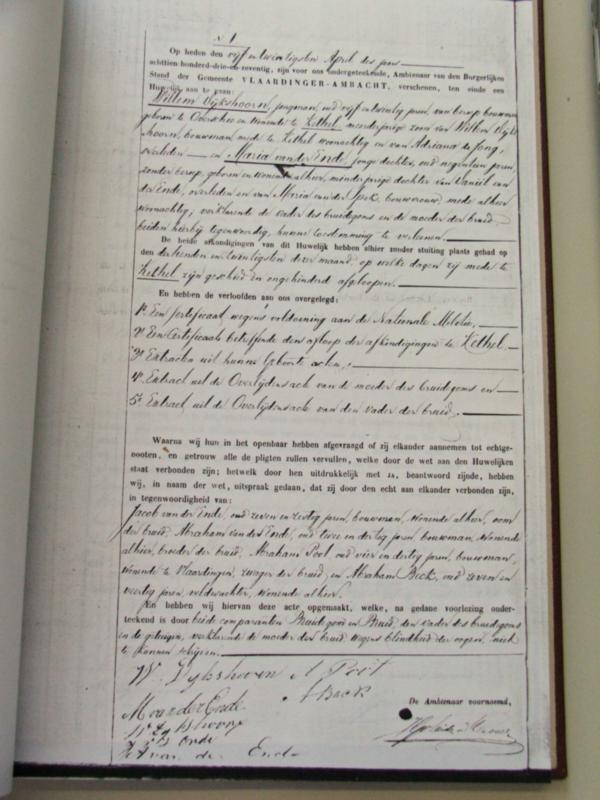 N 1
Op heden den vijf en twintigsten April des jaars
achttien honderd-drie-en zeventig, zijn voor ons ondergeteekende, Ambtenaar van den Burgerlijken
Stand der Gemeente VLAARDINGER-AMBACHT, verschenen, ten einde een
Huwelijk aan te gaan:
Willem Dijkshoorn, jongman, oud vijf en twintig jaren, van beroep bouwman
geboren te Overschie en wonende te Kethel meerderjarige zoon van Willem Dijks
hoorn, bouwman, mede te Kethel woonachtig en van Adriana de Jong,
overleden — en Maria van der Ende, jonge dochter, oud negentien jaren,
zonder beroep, geboren en wonende alhier, minderjarige dochter van Daniel van
der Ende, overleden en van Maria van der Spek, bouwvrouw, mede alhier
woonachtig; verklarende de vader des bruidegoms en de moeder der bruid,
beiden hierbij tegenwoordig, hunne toestemming te verleenen.
De beide afkondigingen van dit Huwelijk hebben alhier zonder stuiting plaats gehad op
den dertienden en twintigsten dezer maand, op welke dagen zij mede te
Kethel zijn geschied en ongehinderd afgeloopen.
En hebben de verloofden aan ons overgelegd:
1e Een Certificaat wegens voldoening aan de Nationale Militie,
2e Een Certificaat betreffende den afloop der afkondigingen te Kethel
3e Extracten uit hunne geboorte acten,
4e Extract uit de Overlijdensack van de moeder des bruidegoms en
5e Extract uit de Overlijdensack van den vader der bruid.
Waarna wij hun in het openbaar hebben afgevraagd of zij elkander aannemen tot echtge-
nooten, en getrouw alle de pligten zullen vervullen, welke door de wet aan den Huwelijken
staat verbonden zijn; hetwelk door hen uitdrukkelijk met JA, beantwoord zijnde, hebben
wij, in naam der wet, uitspraak gedaan, dat zij door den echt aan elkander verbonden zijn,
in tegenwoordigheid van:
Jacob van der Ende, oud zeven en zestig jaren, bouwman, wonende alhier, oom
der bruid, Abraham van der Ende, oud twee en dertig jaren, bouwman, wonende
alhier, broeder der bruid, Abraham Poot oud vier en dertig jaren, bouwman,
wonende te Vlaardingen, zwager der bruid, en Abraham Boek, oud zeven en
veertig jaren, veldwachter, wonende alhier.
En hebben wij hiervan deze acte opgemaakt, welke, na gedane voorlezing onder-
teekend is door beide comparanten Bruidegom en Bruid, den vader des bruidegoms
en de getuigen, verklarende de moeder der bruid wegens blindheid der oogen, niet
te kunnen schrijven.
W. Dykshoorn A Poot
A Boek
M van der Ende
De Ambtenaar voornoemd,
W Dykshoorn
Ende
van der Ende